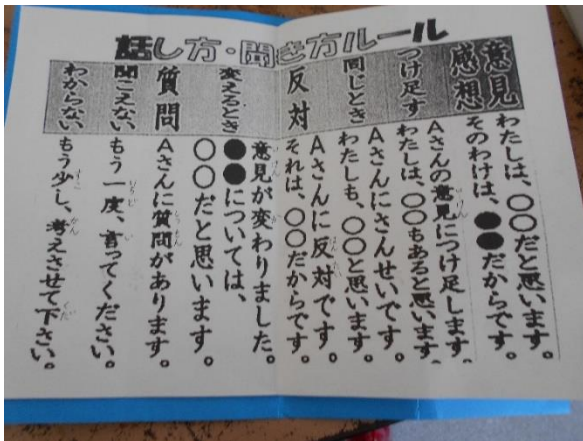 話し方・聞き方ルール
意見
感想
わたしは、○○だと思います。
そのわけは、●●だからです。
つけ足す
Aさんの意見につけ足します。
わたしは、○○もあると思います。
同じとき
Aさんにさんせいです。
わたしも、○○と思います。
反対
Aさんに反対です。
それは、○○だからです。
変えるとき
意見が変わりました。
●●については、
○○だと思います。
質問
Aさんに質問があります。
聞こえない
もう一度、言ってください。
わからない
もう少し、考えさせて下さい。